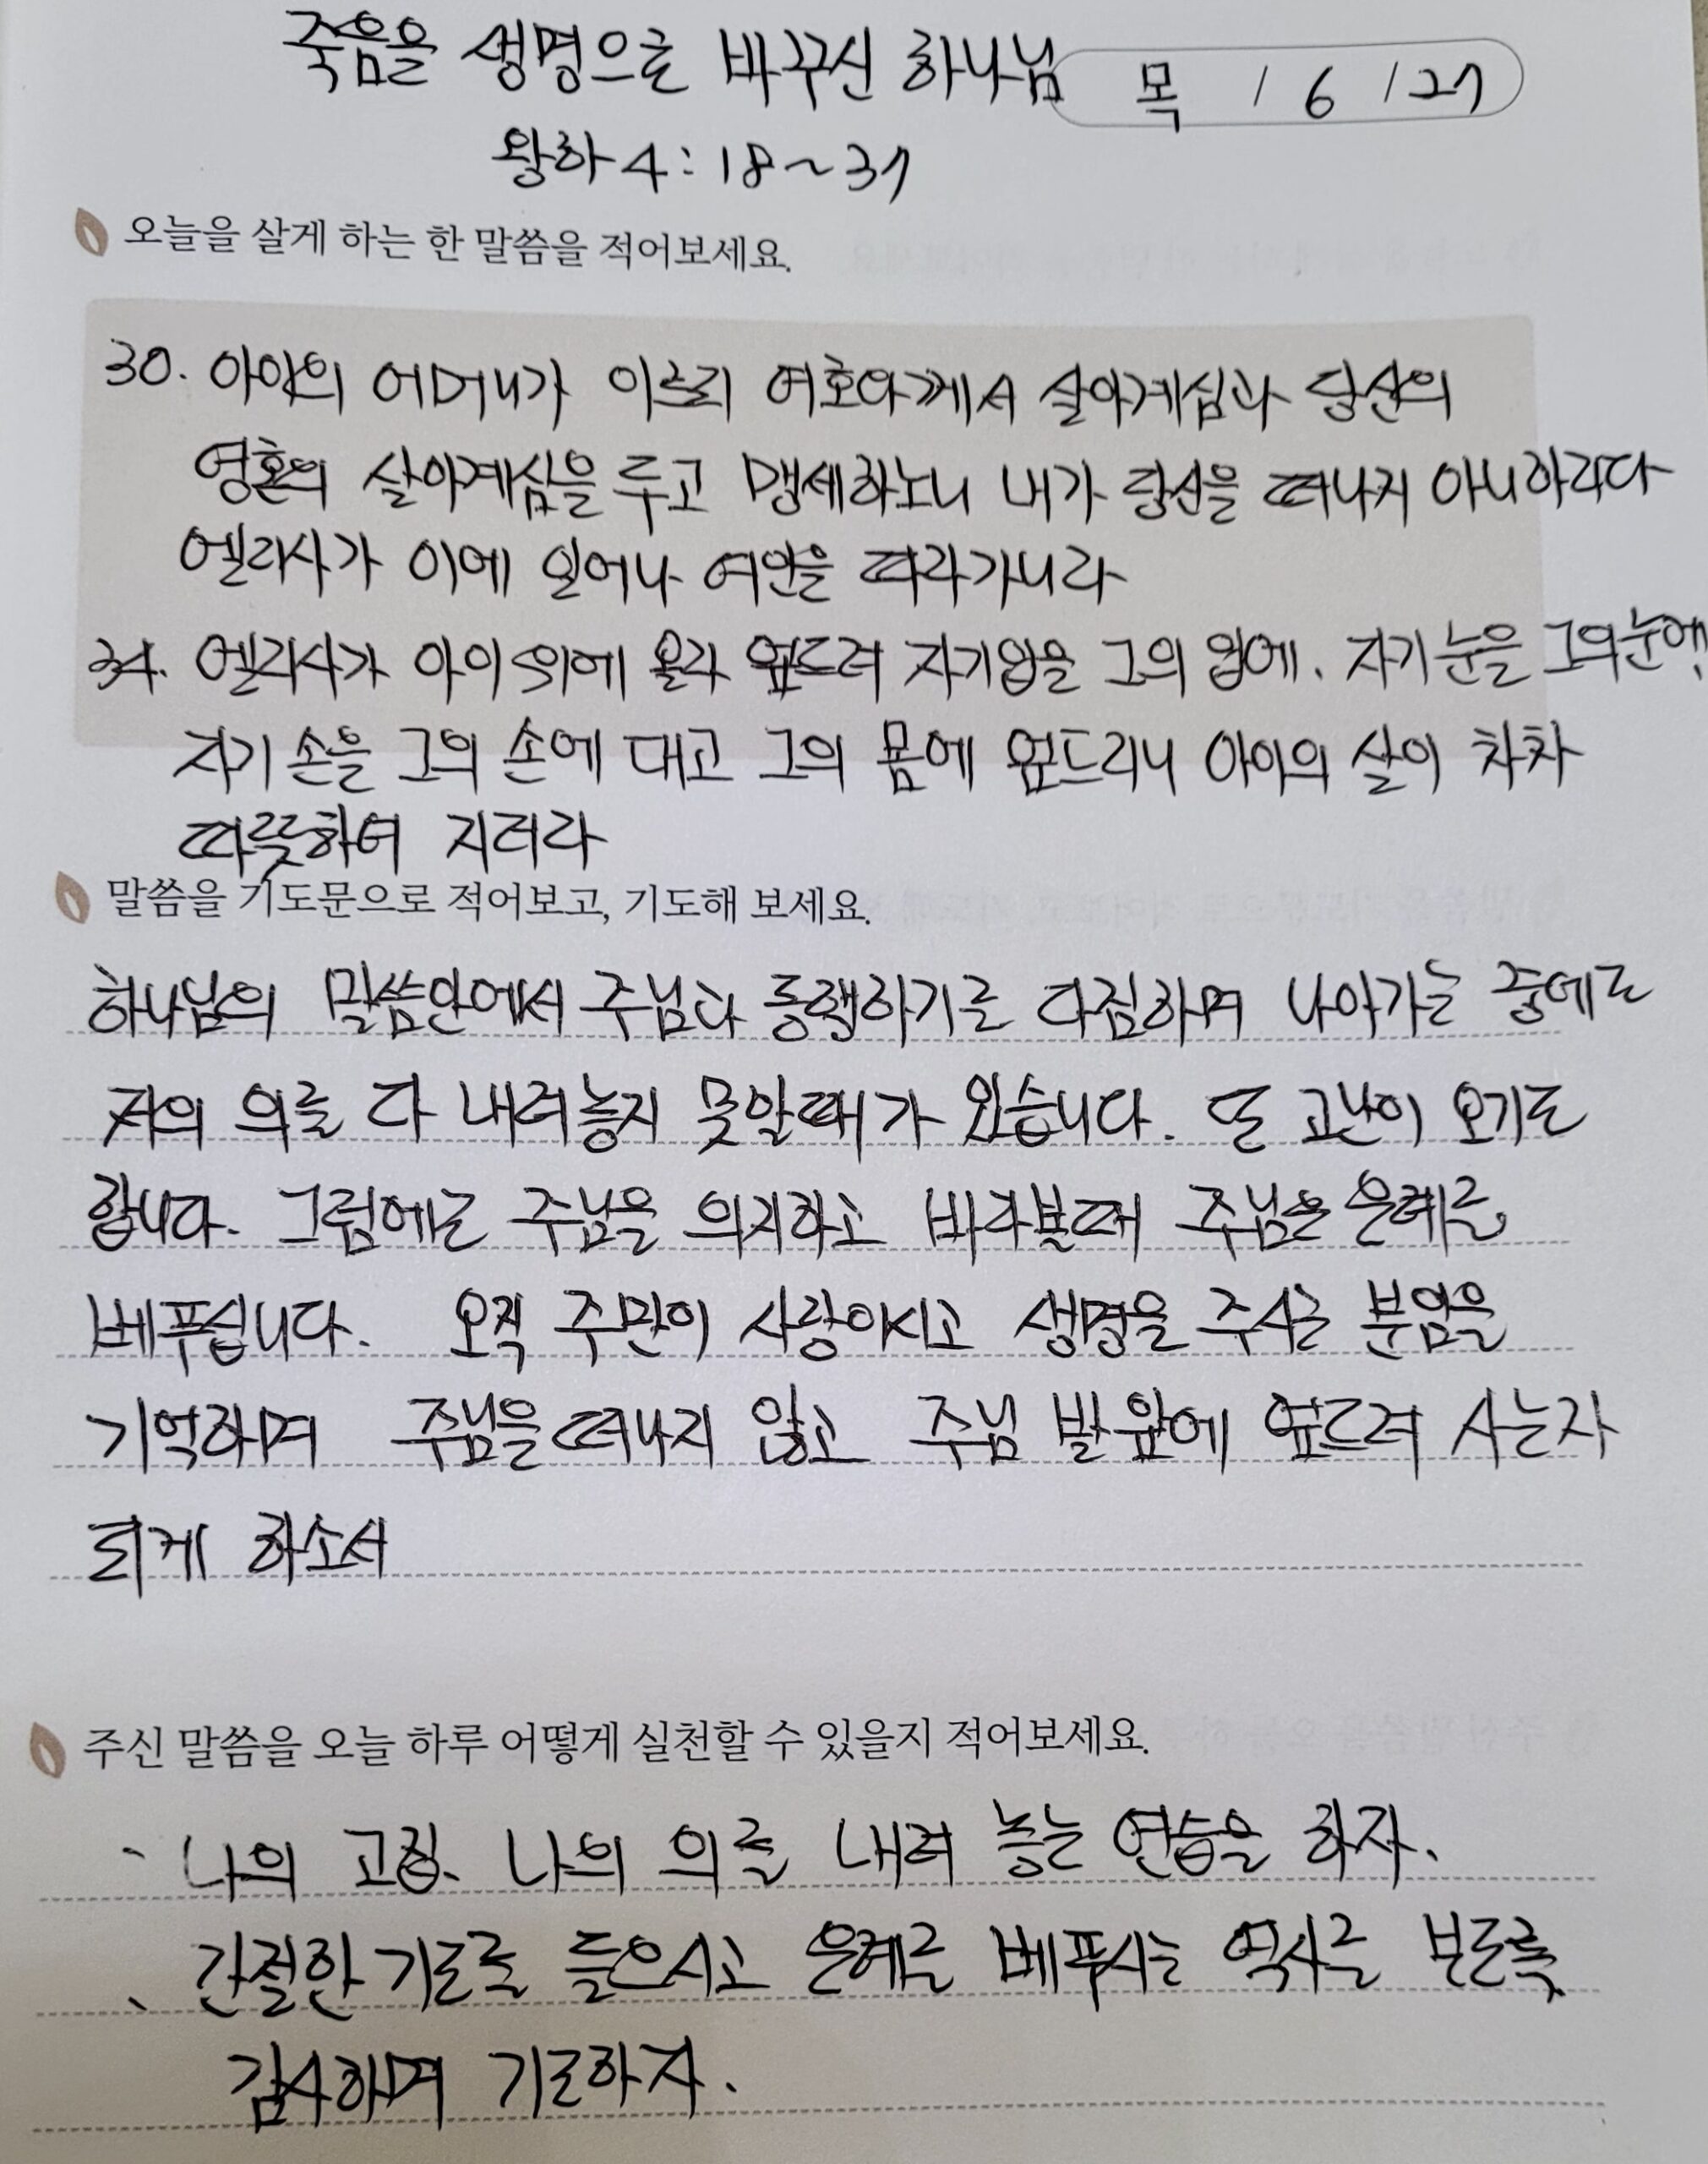 죽음을 생명으로 바꾸신 하나님
목 / 6 / 27
왕하 4 : 18 ~ 37
오늘을 살게 하는 한 말씀을 적어보세요.
30. 아이의 어머니가 이르되 여호와께서 살아계심과 당신의
영혼의 살아계심을 두고 맹세하노니 내가 당신을 떠나지 아니하리다
엘리사가 이에 일어나 여인을 따라가니라
34. 엘리사가 아이 위에 올라 엎드려 자기입을 그의 입에. 자기 눈을 그의눈에,
자기 손을 그의 손에 대고 그의 몸에 엎드리니 아이의 살이 차차
따릇하여 지더라
말씀을 기도문으로 적어보고, 기도해 보세요.
하나님의 말씀안에서 주님과 동행하기를 다짐하며 나아가는 중에도
저의 의를 다 내려놓지 못할때가 있습니다. 또 고난이 오기도
합니다. 그럼에도 주님을 의지하고 바라볼때 주님은 은혜를
베푸십니다. 오직 주만이 사랑이시고 생명을 주시는 분임을
기억하며 주님을 떠나지 않고 주님 발 앞에 엎드려 사는자
되게 하소서
주신 말씀을 오늘 하루 어떻게 실천할 수 있을지 적어보세요.
· 나의 고집. 나의 의를 내려 놓는 연습을 하자.
· 간절한 기도를 들으시고 은혜를 베푸시는 역사를
감사하며 기도하자.